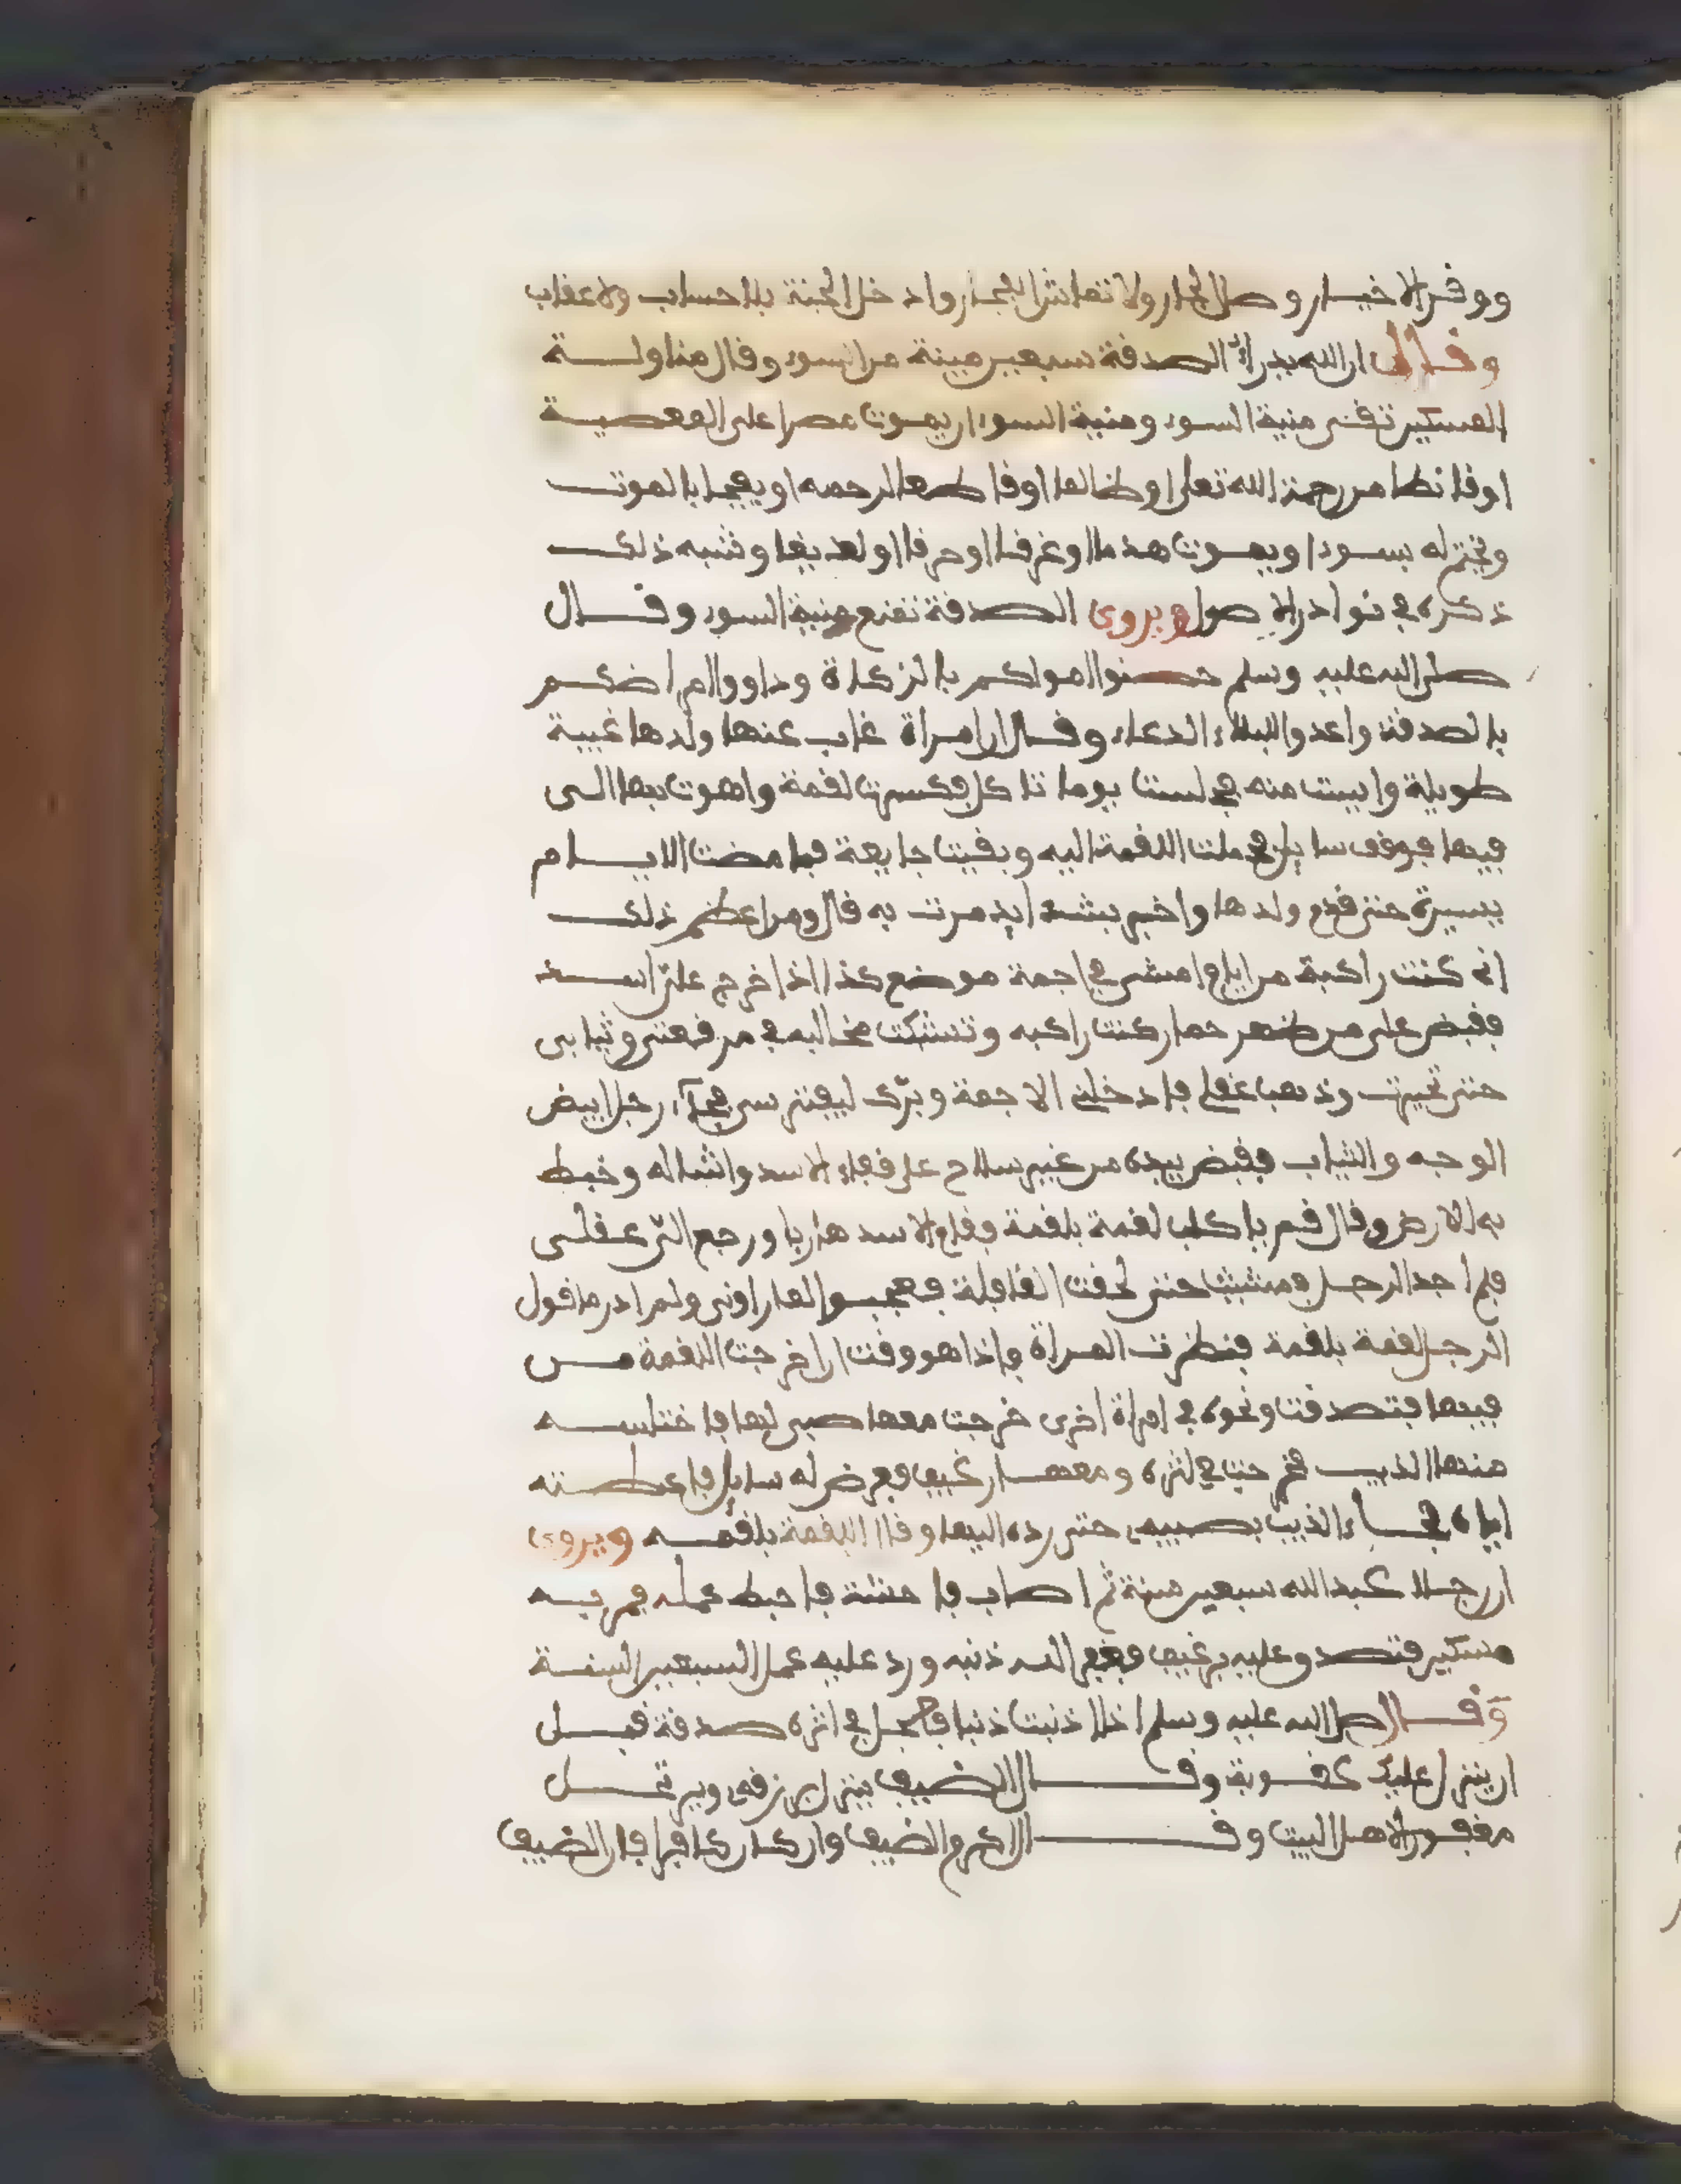 ووقر الاخيار وصل الجار ولا تماش الفجار وادخل الجنة بلا حساب ولا عقاب
وقال ان الله يدرا بالصدقة سبعين ميتة من السوء وقال مناولة
المسكين تقى ميتة السوء وميتة السوء ان يموت مصرا على المعصية
او قانطا من رحمة الله تعلى او ظالما او قاطعا لرحمه او يفجا بالموت
ويختم له بسوء او يموت هدما او غرقا او حرقا او لديغا وشبه ذلك
ذكره في نوادر الاصول ويروى الصدقة تمنع ميتة السوء وقال
صلى الله عليه وسلم حصنوا اموالكم بالزكاة وداووا امراضكم
بالصدقة واعدوا للبلاء الدعاء وقال ان امراة غاب عنها ولدها غيبة
طويلة وايست منه فجلست يوما تاكل فكسرت لقمة واهوت بها الى
فيها فوقف سايل فحملت اللقمة اليه وبقيت جايعة فما مضت الايام
يسيرة حتى قدم ولدها واخبر بشدايد مرت به قال ومن اعظم ذلك
اني كنت راكبة من ايام امشي في اجمة موضع كذا اذ اخرج علي اسد
فقبض علي من ظهر حمار كنت راكبه وتشبكت مخالبه في مرقعتي وثيابي
حتى تحيرت وذهب عقلي فادخلني الاجمة وبرك ليفترسني فجاء رجل ابيض
الوجه والثياب فقبض بيده من غير سلاح على قفاء الاسد واشاله وخبط
به الارض وقال قم يا كلب لقمة بلقمة فقام الاسد هاربا ورجع الي عقلي
فلم اجد الرجل فمشيت حتى لحقت القافلة فعجبوا لما راوني ولم ادر ما قول
الرجل لقمة بلقمة فنظرت المراة فاذا هو وقت ان اخرجت اللقمة من
فيها فتصدقت ونحوه في امراة اخرى خرجت معها صبي لها فاختلسه
منها الذيب فخرجت في اثره ومعها رغيف فعرض له سايل فاعطته
اياه فجاء الذيب بصبيها حتى رده اليها وقال اللقمة بلقمه ويروى
ان رجلا عبد الله سبعين سنة ثم اصاب فاحشة فاحبط عمله فمر به
مسكين فتصدق عليه برغيف فغفر الله ذنبه ورد عليه عمل السبعين السنة
وقال صلى الله عليه وسلم اذا اذنبت ذنبا فاجعل في اثره صدقة قبل
ان ينزل عليك عقوبة وقال الضيف ينزل برزقه ويرتحل
مغفور لاهل البيت وقال اكرم الضيف وان كان كافرا فان الضيف